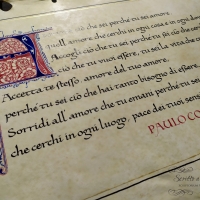 sei perché tu sei amore.
quell'amore che cerchi in ogni cosa e in ogni
Accogli ciò che tu sei perché tu sei ciò che
ciò che tu vuoi essere, tu sei la vita
Accetta te stesso, amore del tuo amore,
perché tu sei ciò che hai tanto bisogno di essere.
Sorridi all'amore che tu emani perché tu sei
che cerchi in ogni luogo, pace dei tuoi sensi
PAULO CO